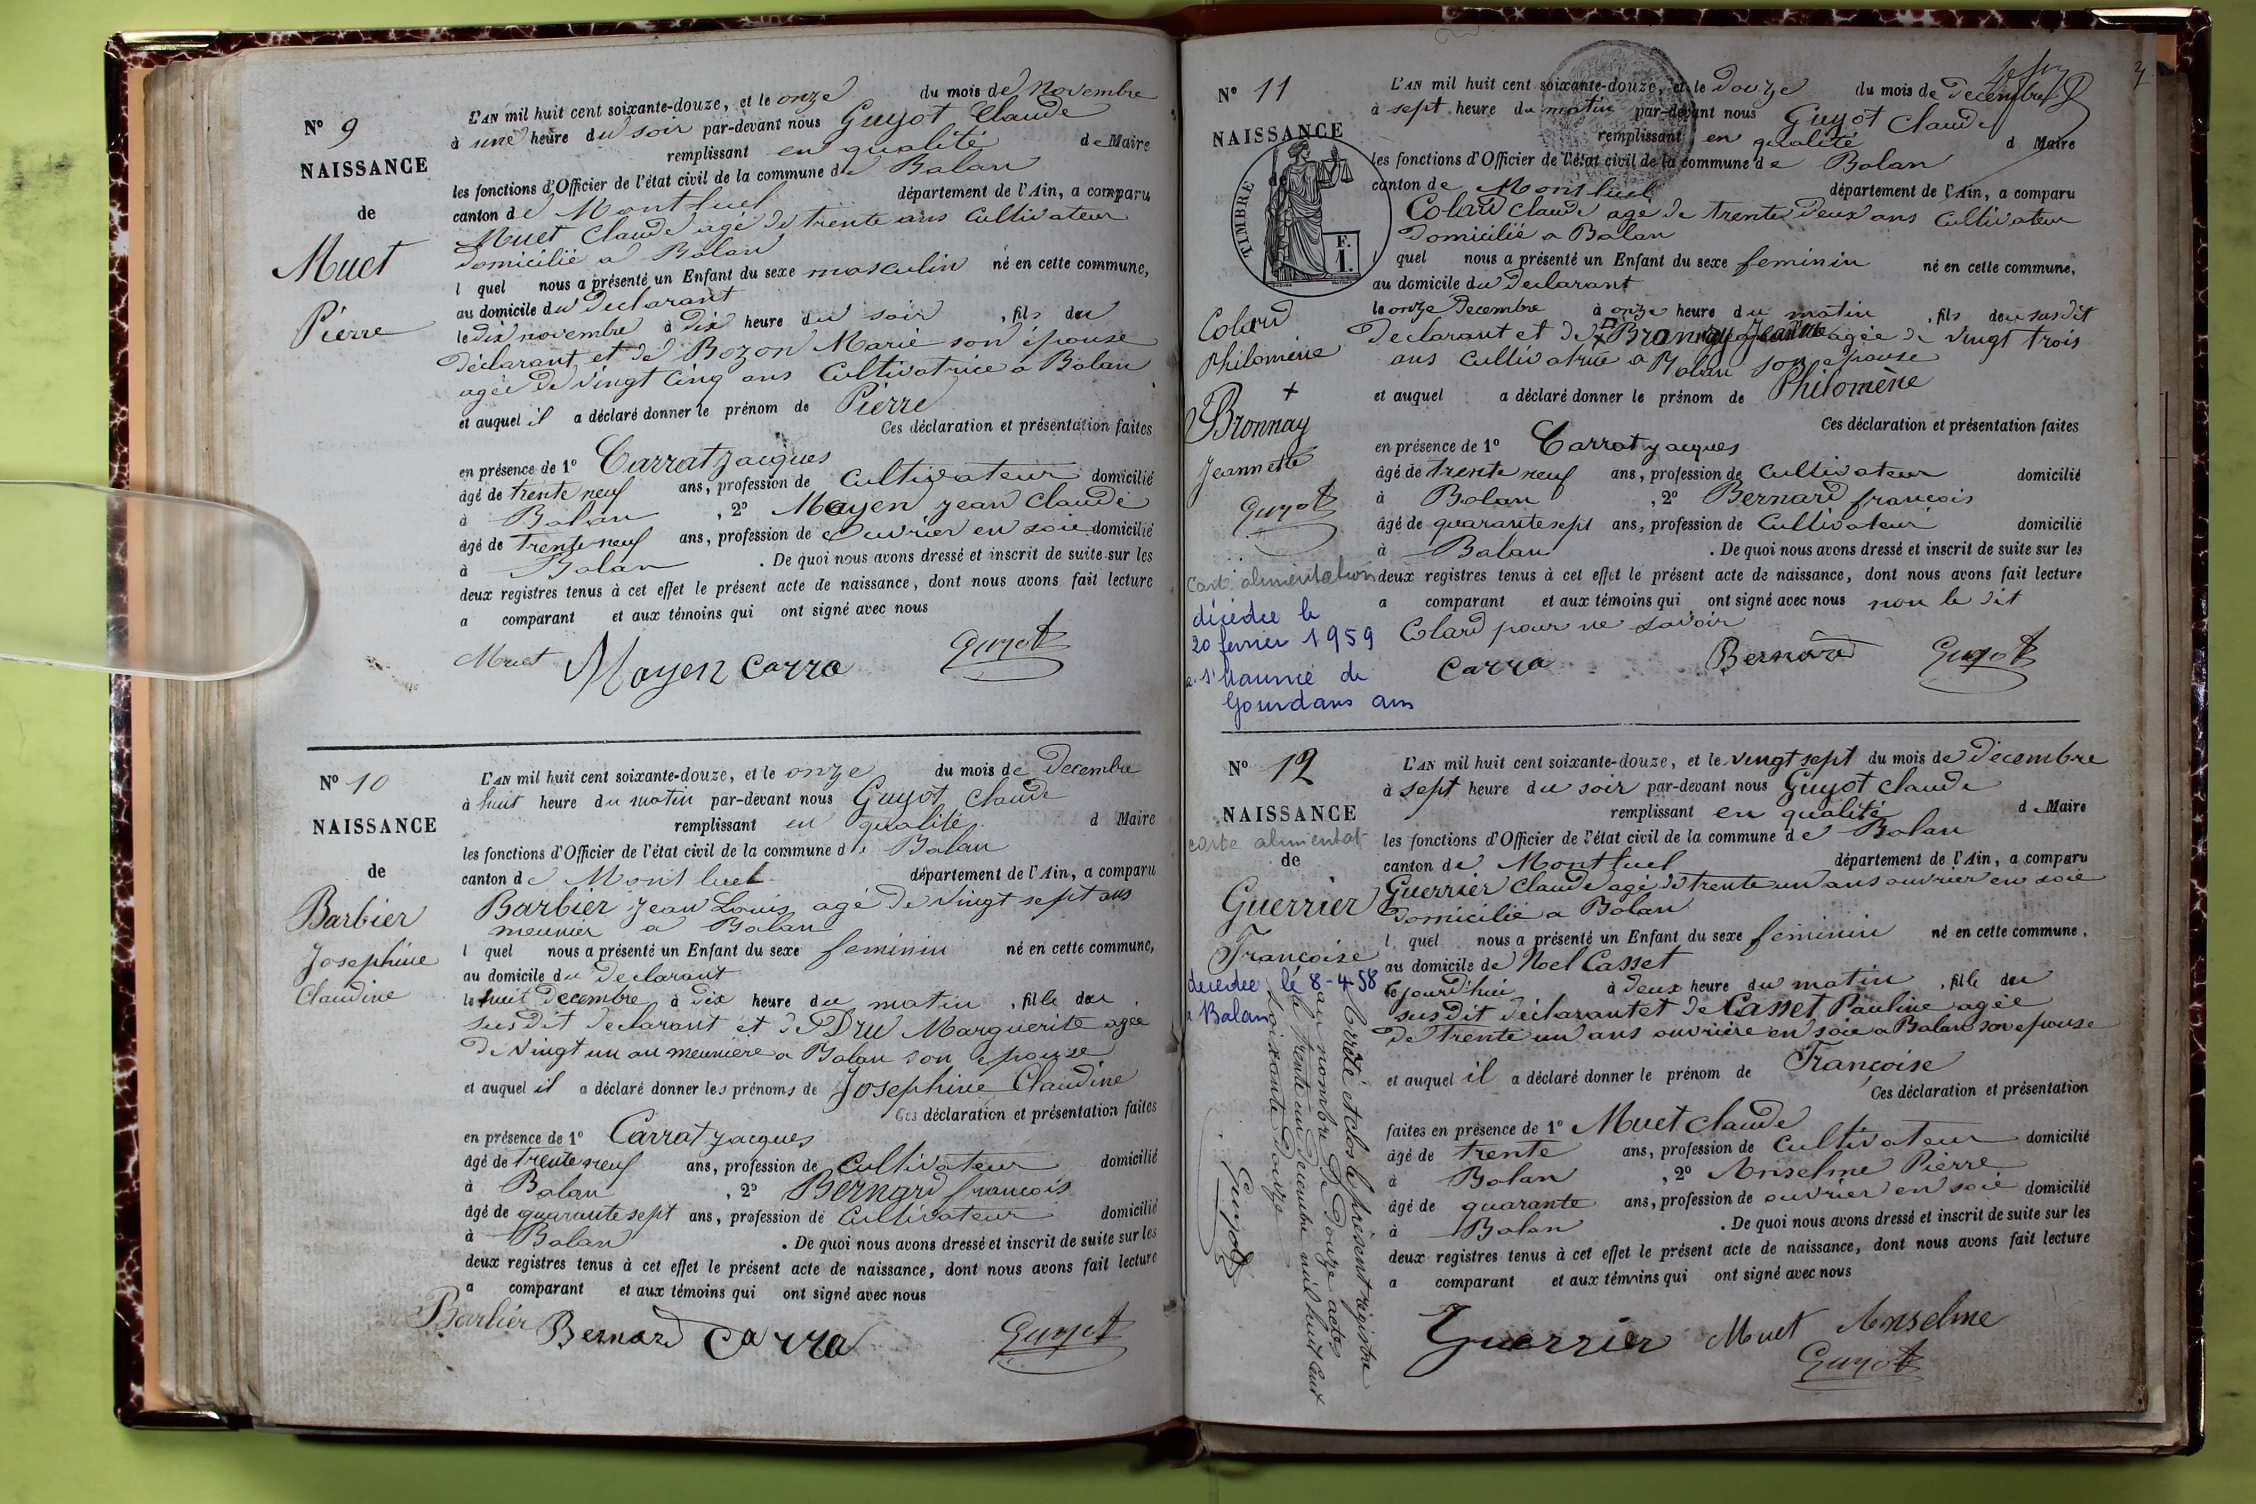 N° 9
NAISSANCE
de
Muet
Pierre
L'AN mil huit cent soixante-douze, et le onze du mois de Novembre
à une heure du soir par-devant nous Guyot Claude
remplissant en qualité de Maire
les fonctions d'Officier de l'état civil de la commune de Balan
canton de Montluel département de l'Ain, a comparu
Muet Claude agé de trente ans Cultivateur
domicilié a Balan
l quel nous a présenté un Enfant du sexe masculin né en cette commune,
au domicile du Declarant
le dix novembre à dix heure du soir , fils du
déclarant et de Bozon Marie son épouse
agée de vingt cinq ans Cultivatrice a Balan
et auquel il a déclaré donner le prénom de Pierre
Ces déclaration et présentation faites
en présence de 1° Carrat jacques
âgé de trente neuf ans, profession de Cultivateur domicilié
à Balan , 2° Mayen jean Claude
âgé de trente neuf ans, profession de ouvrier en soie domicilié
à Balan . De quoi nous avons dressé et inscrit de suite sur les
deux registres tenus à cet effet le présent acte de naissance, dont nous avons fait lecture
a comparant et aux témoins qui ont signé avec nous
Muet Mayen Carra Guyot
N° 10
NAISSANCE
de
Barbier
Josephine
Claudine
L'AN mil huit cent soixante-douze, et le onze du mois de Decembre
à huit heure du matin par-devant nous Guyot Claude
remplissant en qualité d Maire
les fonctions d'Officier de l'état civil de la commune de Balan
canton de Montluel département de l'Ain, a comparu
Barbier jean Louis agé de vingt sept ans
meunier a Balan
l quel nous a présenté un Enfant du sexe feminin né en cette commune,
au domicile du Declarant
le huit Decembre à dix heure du matin , fille du
susdit declarant et de Dru Marguerite agée
de vingt un an meuniere a Balan son epouse
et auquel il a déclaré donner les prénoms de Josephine Claudine
Ces déclaration et présentation faites
en présence de 1° Carrat jacques
âgé de trente neuf ans, profession de Cultivateur domicilié
à Balan , 2° Bernard francois
âgé de quarante sept ans, profession de Cultivateur domicilié
à Balan . De quoi nous avons dressé et inscrit de suite sur les
deux registres tenus à cet effet le présent acte de naissance, dont nous avons fait lecture
a comparant et aux témoins qui ont signé avec nous
Barbier Bernard Carra Guyot
N° 11
NAISSANCE
de
TIMBRE
F.
I.
Colard
Philomène
+
Bronnay
Jeannette
Guyot
Carte alimentation
décédée le
20 fevrier 1959
a St Maurice de
Gourdans ain
L'AN mil huit cent soixante-douze, et le Douze du mois de Decembre
à sept heure du matin par-devant nous Guyot Claude
remplissant en qualité d Maire
les fonctions d'Officier de l'état civil de la commune de Balan
canton de Montluel département de l'Ain, a comparu
Colard Claude agé de trente deux ans Cultivateur
domicilié a Balan
quel nous a présenté un Enfant du sexe feminin né en cette commune,
au domicile du Declarant
le onze Decembre à onze heure du matin , fils du susdit
declarant et de + Bronnay Jeannette agée de vingt trois
ans Cultivatrice a Balan son epouse
et auquel a déclaré donner le prénom de Philomène
Ces déclaration et présentation faites
en présence de 1° Carrat jacques
âgé de trente neuf ans, profession de Cultivateur domicilié
à Balan , 2° Bernard francois
âgé de quarante sept ans, profession de Cultivateur domicilié
à Balan . De quoi nous avons dressé et inscrit de suite sur les
deux registres tenus à cet effet le présent acte de naissance, dont nous avons fait lecture
a comparant et aux témoins qui ont signé avec nous non le dit
Colard pour ne savoir
Carra Bernard Guyot
N° 12
NAISSANCE
carte alimentat
de
Guerrier
Françoise
decedee le 8-4-58
a Balan
Arrêté et clos le présent régistre
au nombre de Douze actes
le trente un Decembre mil huit cent
soixante Douze
Guyot
L'AN mil huit cent soixante-douze, et le vingt sept du mois de Decembre
à sept heure du soir par-devant nous Guyot Claude
remplissant en qualité d Maire
les fonctions d'Officier de l'état civil de la commune de Balan
canton de Montluel département de l'Ain, a comparu
Guerrier Claude agé de trente un ans ouvrier en soie
domicilié a Balan
l quel nous a présenté un Enfant du sexe feminin né en cette commune,
au domicile de Noel Casset
le jourd'hui à deux heure du matin , fille du
susdit déclarant et de Casset Pauline agée
de trente un ans ouvriere en soie a Balan son epouse
et auquel il a déclaré donner le prénom de Françoise
Ces déclaration et présentation
faites en présence de 1° Muet Claude
âgé de trente ans, profession de Cultivateur domicilié
à Balan , 2° Anselme Pierre
âgé de quarante ans, profession de ouvrier en soie domicilié
à Balan . De quoi nous avons dressé et inscrit de suite sur les
deux registres tenus à cet effet le présent acte de naissance, dont nous avons fait lecture
a comparant et aux témoins qui ont signé avec nous
Guerrier Muet Anselme
Guyot